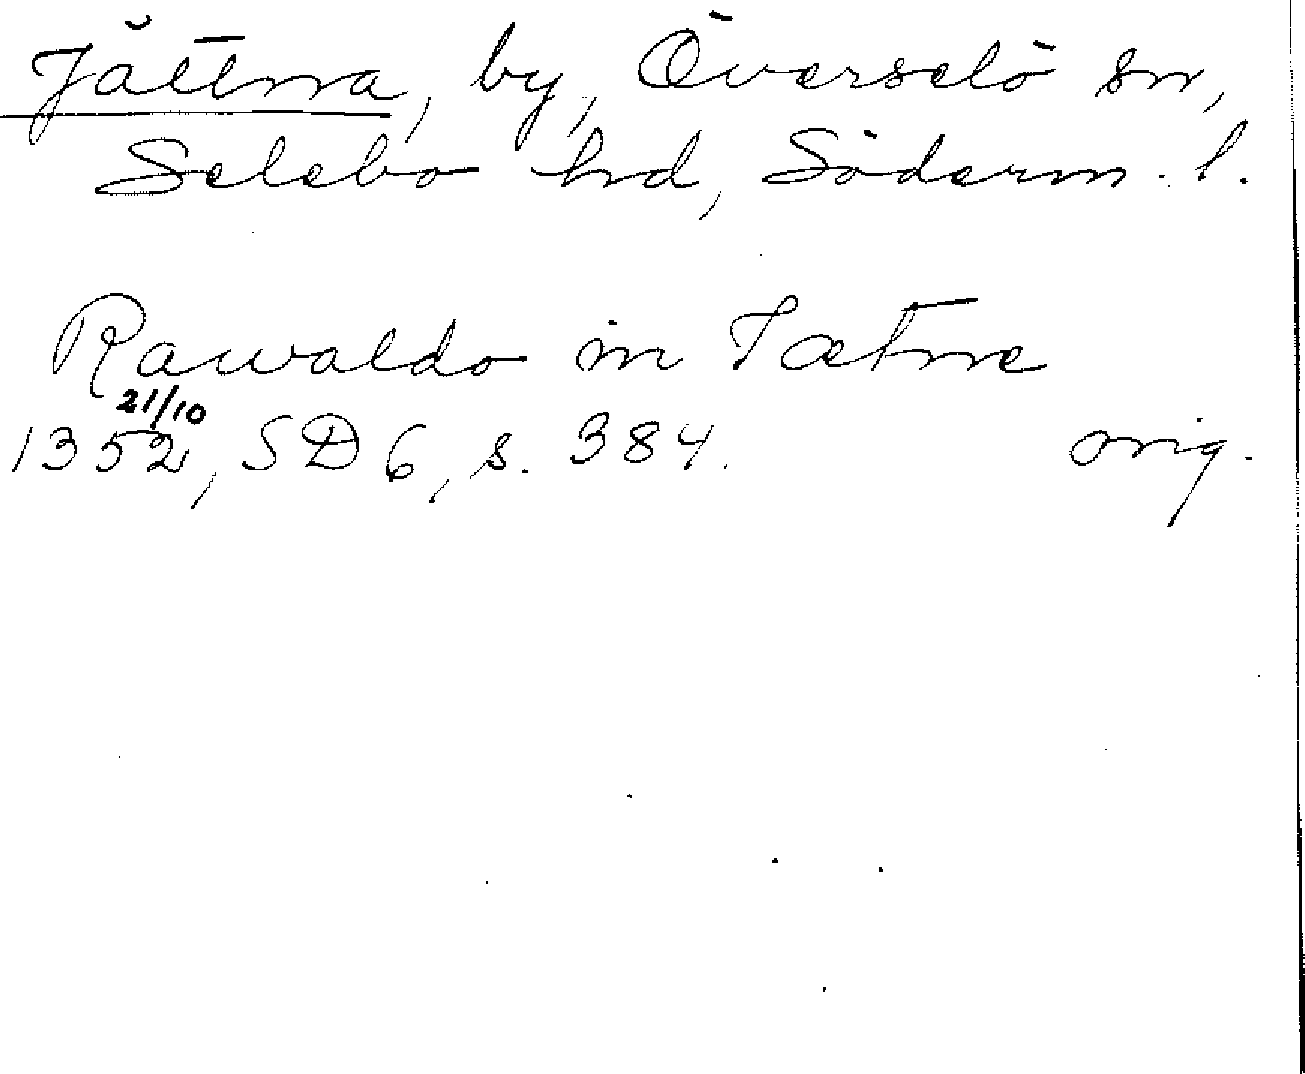 Jättna, by, Överselö sn,
Selebo hd, Söderm. l.
Rawaldo in Iætne
21/10
1352, SD 6, s. 384. orig.